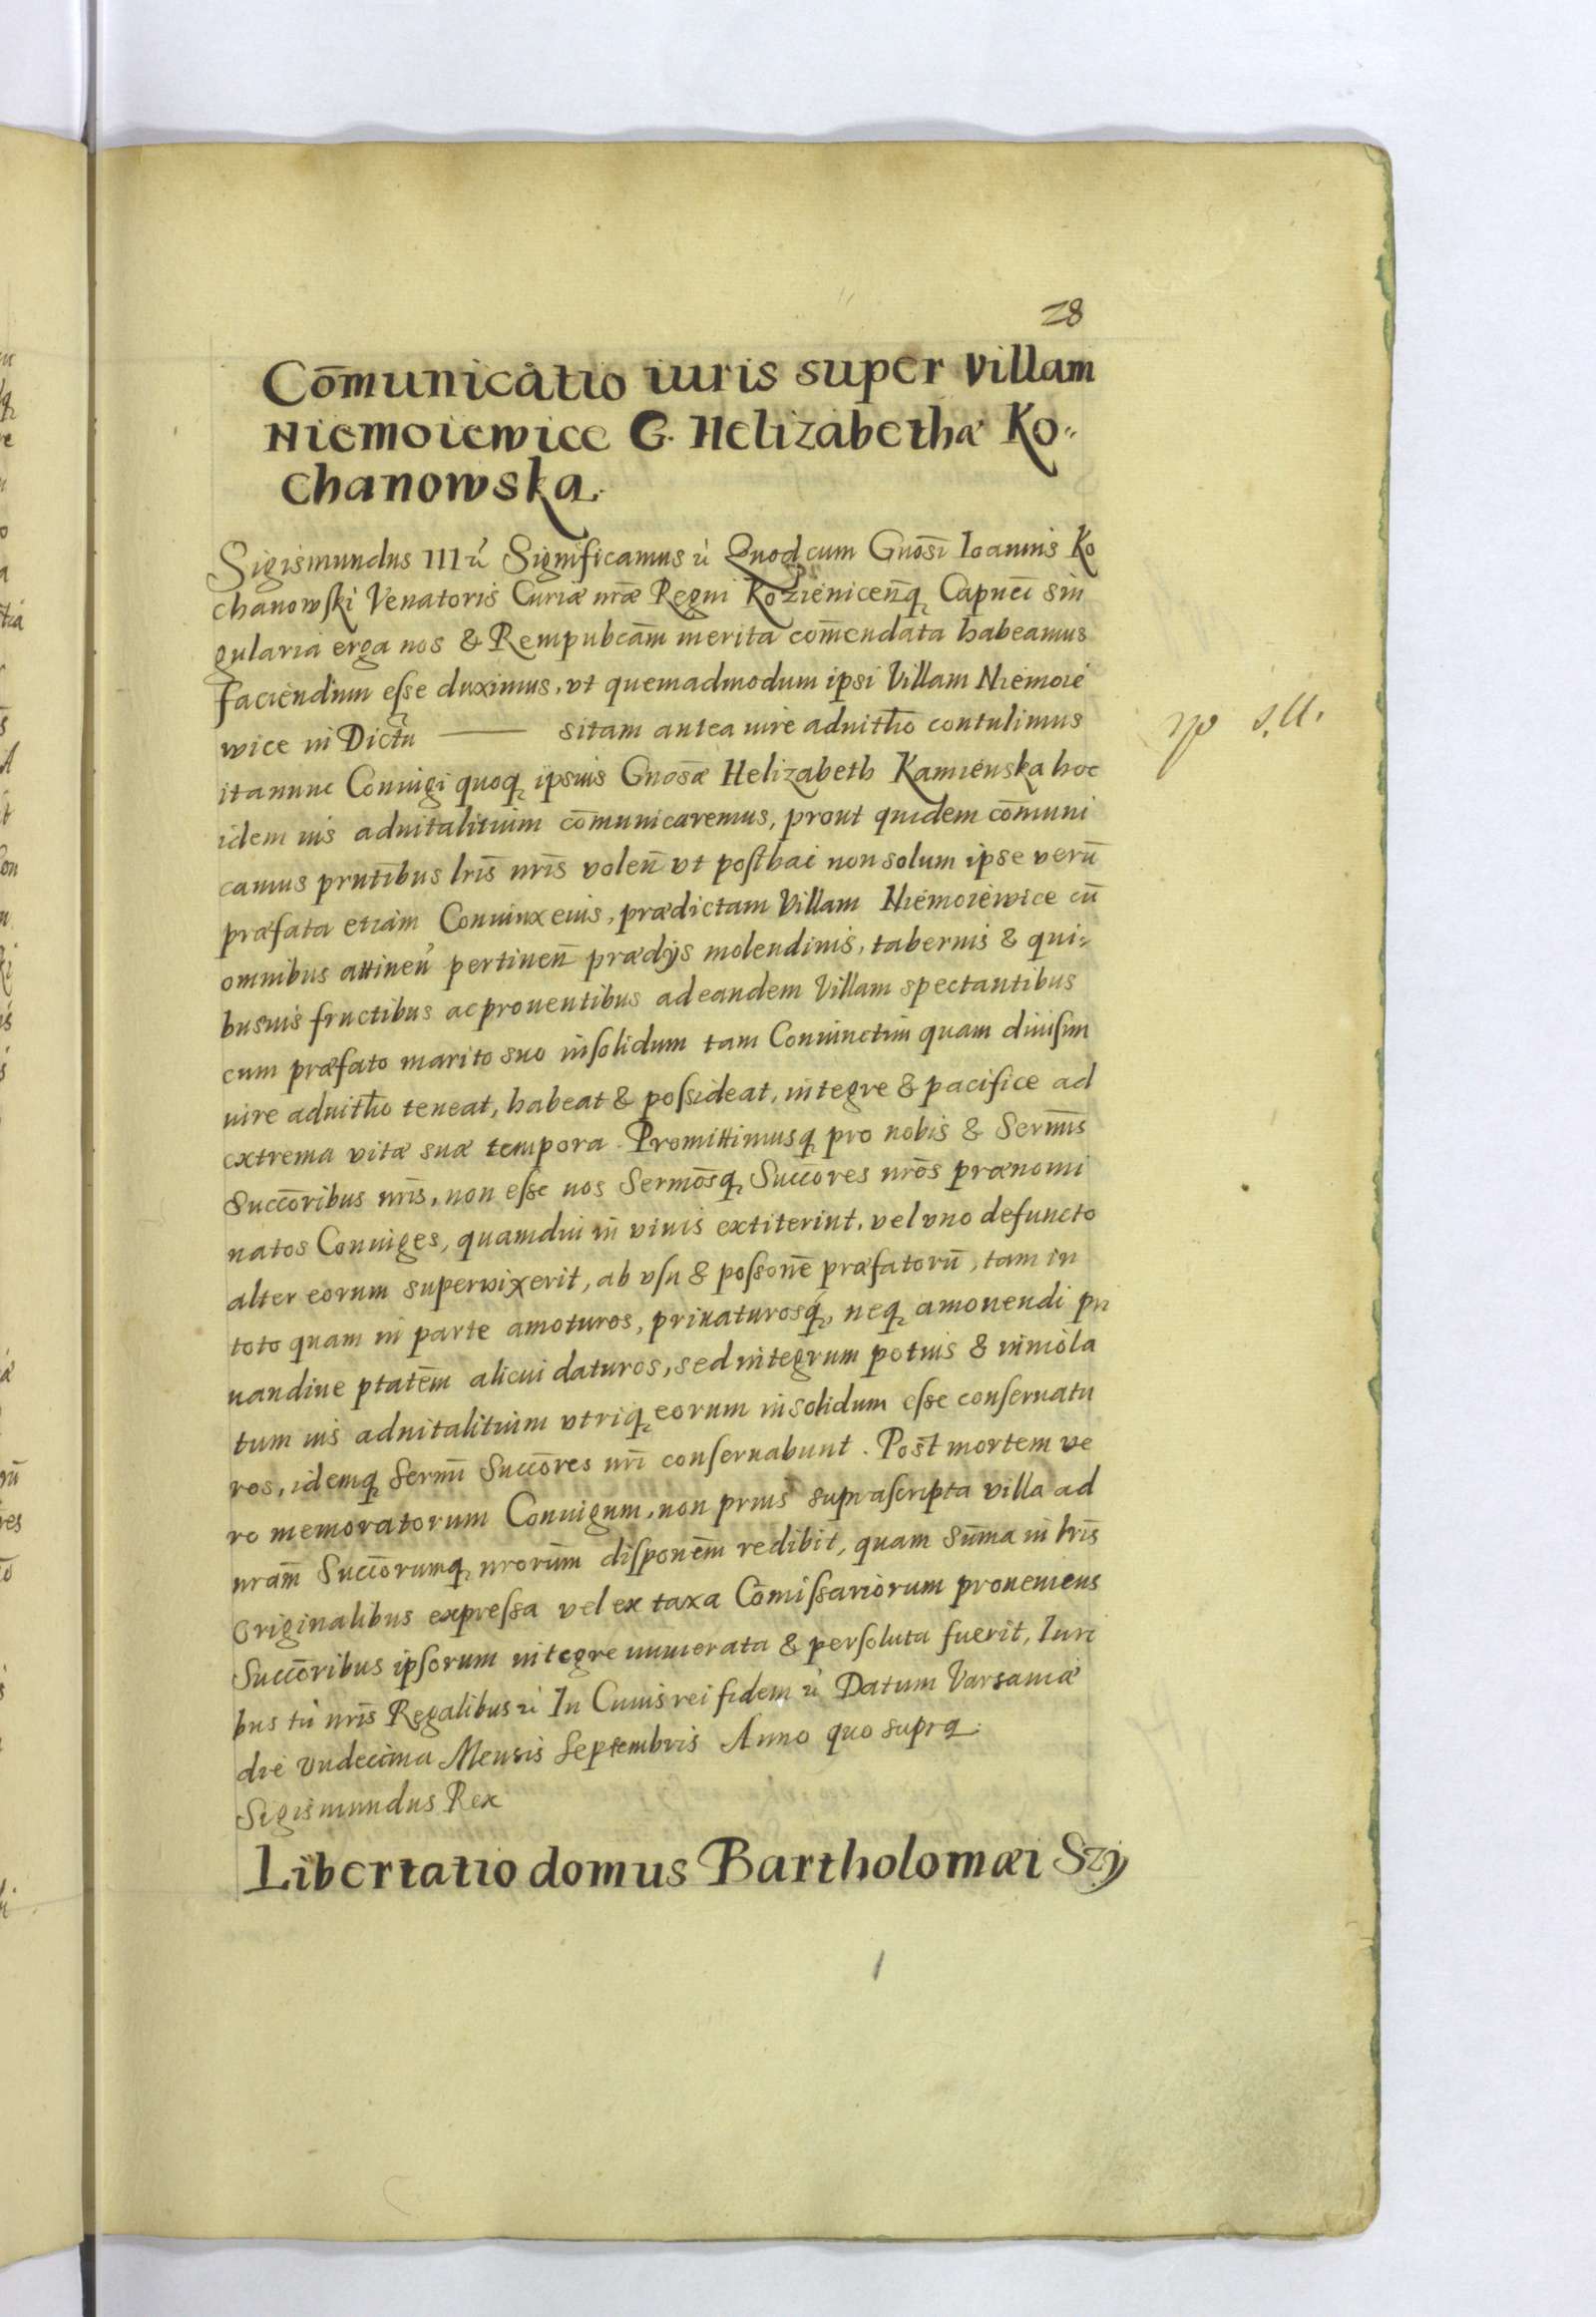 28
Cōmunicatio iuris super villam
Niemoiewice G. Helizabethæ Ko=
chanowska.
Sigismundus III etc̃ Significamus etc̃ Quod cum Gnosī Ioannis Ko
chanowski Venatoris Curiæ nræ Regni Kozieniceñq₃ Capnei sin
gularia erga nos & Rempubcām merita cōmendata habeamus
faciendum eſse duximus, vt quemadmodum ipsi Villam Niemoie
wice in Dictu ——— sitam antea iure aduithō contulimus
ita nunc Coniugi quoq₃ ipsius Gnosæ Helizabeth Kamienska hoc
idem ius aduitalitium cōmunicaremus, prout quidem cōmuni
camus pntībus lrīs nrīs voleñ vt poſthac non solum ipse verū
præfata etiam Coniunx eius, prædictam Villam Niemoiewice cū
omnibus attineñ pertineñ prædijs molendinis, tabernis & qui=
busuis fructibus ac prouentibus ad eandem Villam spectantibus
cum præfato marito suo inſolidum tam Coniunctim quam diuiſim
iure aduithō teneat, habeat & poſsideat, integre & pacifice ad
extrema vitæ suæ tempora. Promittimusq₃ pro nobis & Sermīs
Succōribus nrīs, non eſse nos Sermōsq₃ Succōres nrōs prænomi
natos Coniuges, quamdiu in viuis extiterint, vel vno defuncto
alter eorum superuixerit, ab vſu & poſsonē præfatorū, tam in
toto quam in parte amoturos, priuaturosq₃, neq₃ amouendi pri
uandiue ptatēm alicui daturos, sed integrum potius & inuiola
tum ius aduitalitium vtriq₃ eorum in solidum eſse conſeruatu
ros, idemq₃ Sermī Succōres nrī conſeruabunt. Post mortem ve
ro memoratorum Coniugum, non prius supraſcripta villa ad
nrām Succōrumq₃ nrorūm diſponēm redibit, quam Sūma in lrīs
originalibus expreſsa vel ex taxa Cōmiſsariorum proueniens
Succōribus ipſorum integre numerata & perſoluta fuerit, Iuri
bus tñ nrīs Regalibus etc̃ In Cuius rei fidem etc̃ Datum Varsauiæ
die vndecima Mensis Septembris Anno quo supra.
Sigismundus Rex
Libertatio domus Bartholomæi Szy